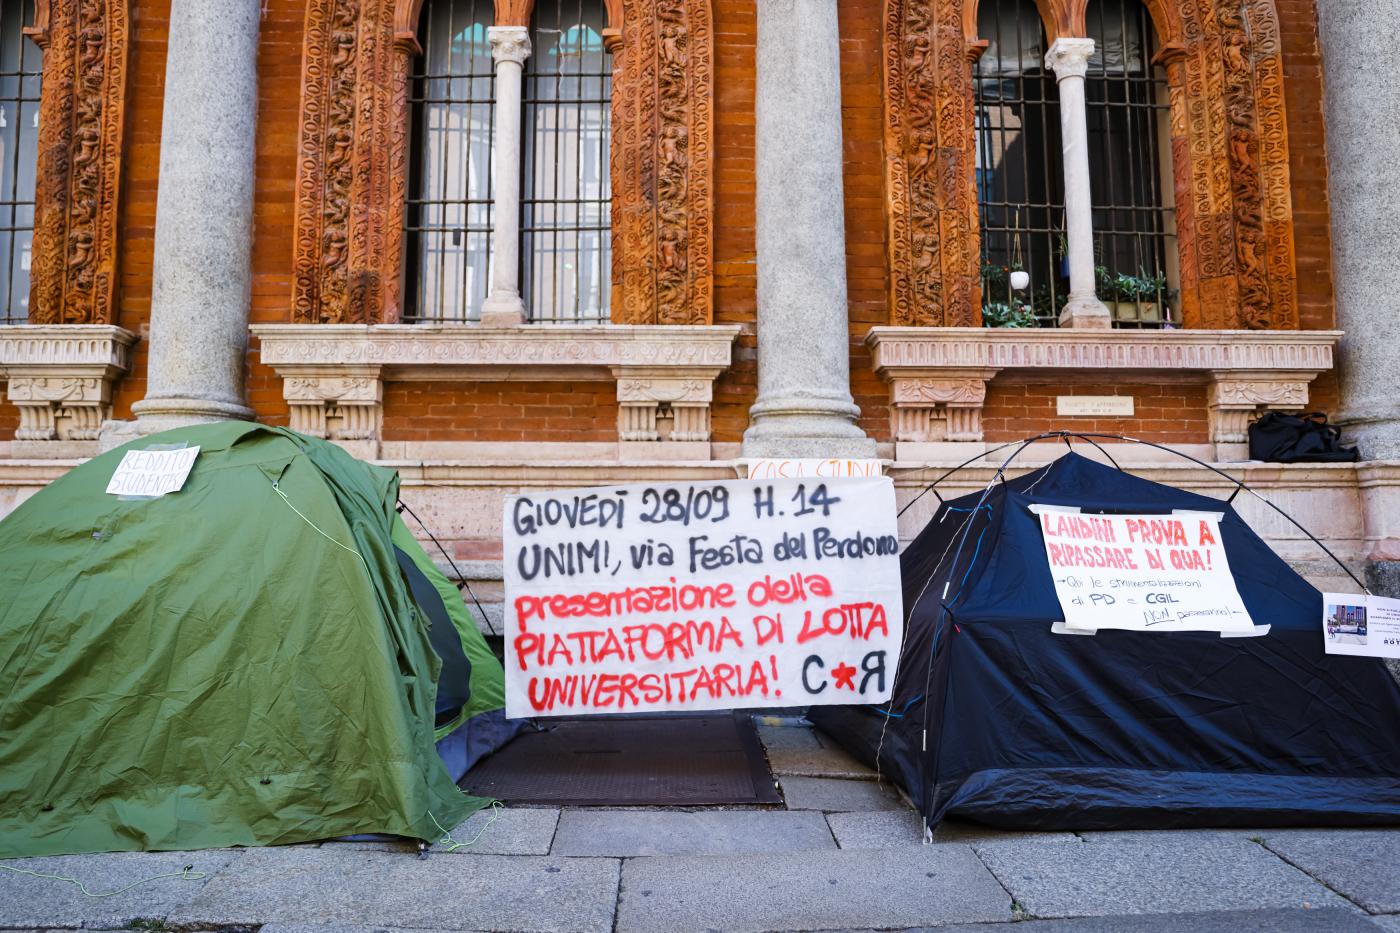 REDDITO
STUDENTI
CASA STUDIO
GIOVEDÌ 28/09 H. 14
UNIMI, via Festa del Perdono
presentazione della
PIATTAFORMA DI LOTTA
UNIVERSITARIA! C*R
LANDINI PROVA A
RIPASSARE DI QUA!
→Qui le strumentalizzazioni
di PD e CGIL
NON passeranno!←